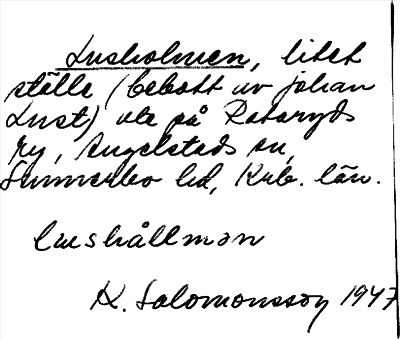 Lusholmen, litet
ställe (bebott av Johan
Lust) ute på Rataryds
ry, Angelstads sn,
Sunnerbo hd, Krb. län.
lushållman
K. Salomonsson 1947